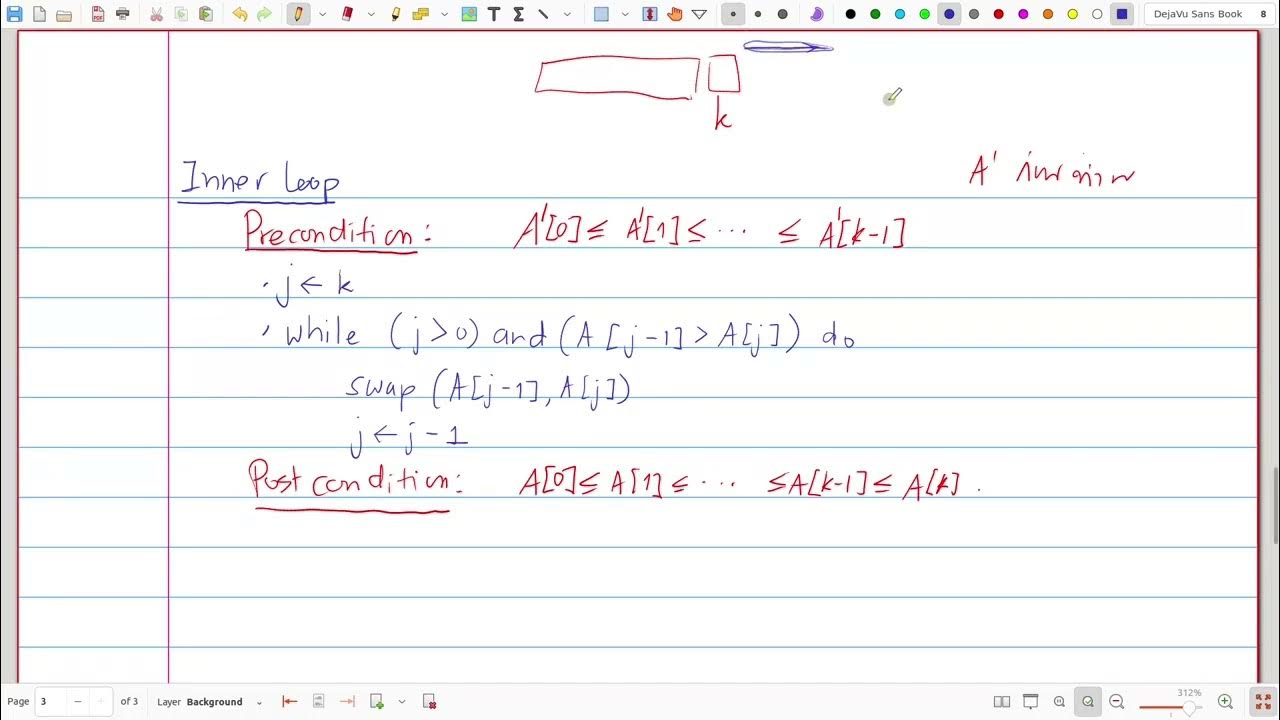 DejaVu Sans Book 8
k
Inner loop
A'
Precondition: A'[0] ≤ A'[1] ≤ ... ≤ A'[k-1]
· j ← k
· while (j > 0) and (A[j-1] > A[j]) do
swap (A[j-1], A[j])
j ← j - 1
Post condition: A[0] ≤ A[1] ≤ ... ≤ A[k-1] ≤ A[k].
Page 3 of 3 Layer Background 312%